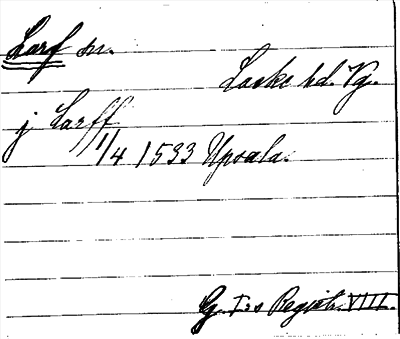 Larf sn.
Laske hd. Vg.
j Larff
1/4 1533 Upsala.
G. I:s Registr. VIII.